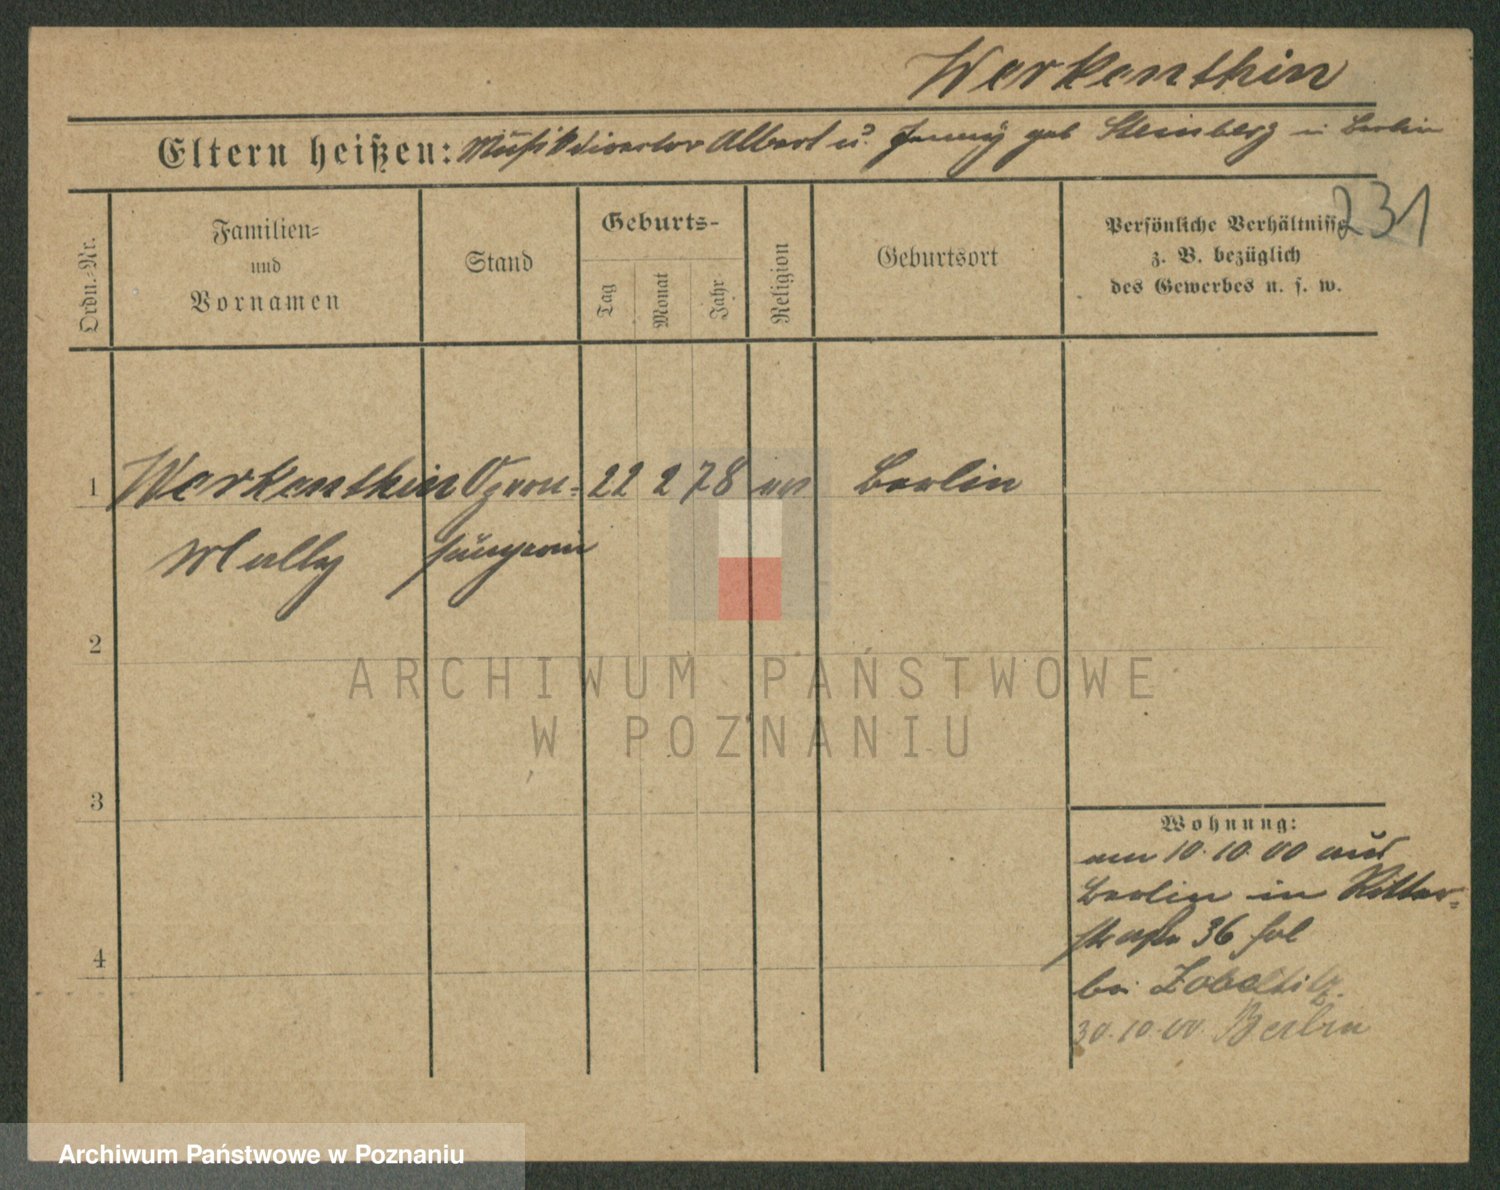 Werkenthin
Eltern heißen: Musikdirector Albert u. Jenny geb Steinberg in Berlin
231
Ordn.-Nr.
Familien-
und
Vornamen
Stand
Geburts-
Tag
Monat
Jahr
Religion
Geburtsort
Persönliche Verhältnisse
z. B. bezüglich
des Gewerbes u. s. w.
1 Werkenthin Opern- 22 2 78 ev Berlin
Mally sängerin
2
3
4
Wohnung:
am 10.10.00 aus
Berlin in Ritter-
straße 36
bei
30.10.00 Berlin
ARCHIWUM PAŃSTWOWE
W POZNANIU
Archiwum Państwowe w Poznaniu